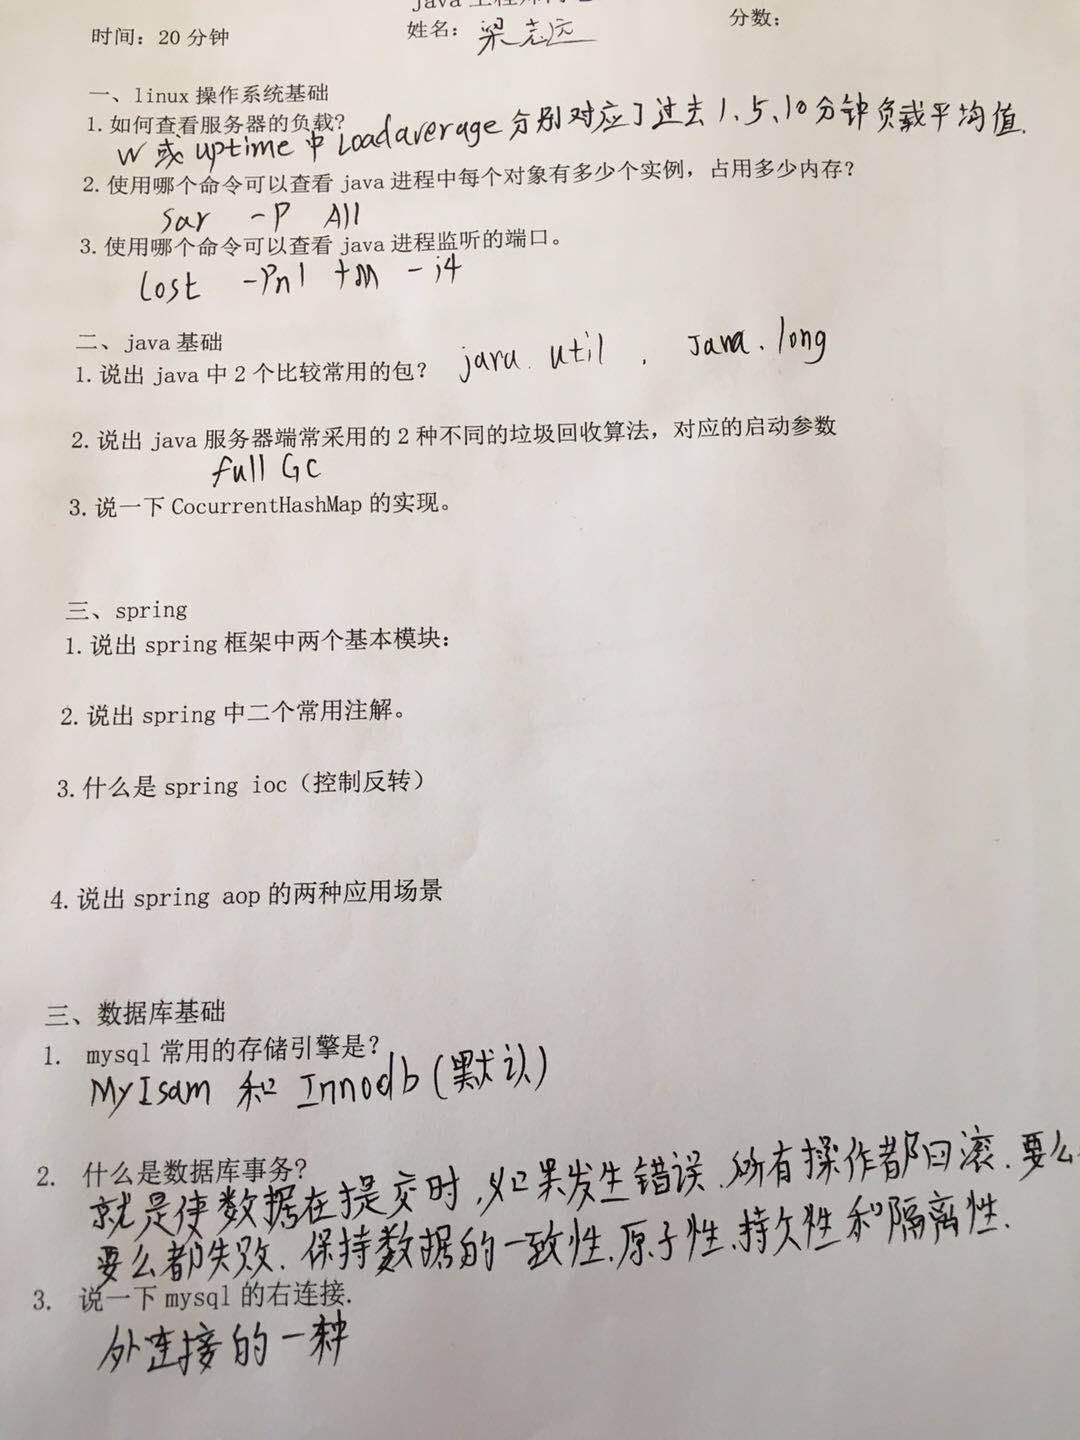 java 工程师
时间：20 分钟 姓名：梁志远 分数：
一、linux 操作系统基础
1. 如何查看服务器的负载？
W 或 uptime 中 Load average 分别对应了过去 1、5、10 分钟负载平均值.
2. 使用哪个命令可以查看 java 进程中每个对象有多少个实例，占用多少内存？
sar -P All
3. 使用哪个命令可以查看 java 进程监听的端口。
lost -Pnl +M -i4
二、java 基础
1. 说出 java 中 2 个比较常用的包？ java. util , Java. long
2. 说出 java 服务器端常采用的 2 种不同的垃圾回收算法，对应的启动参数
full GC
3. 说一下 CocurrentHashMap 的实现。
三、spring
1. 说出 spring 框架中两个基本模块：
2. 说出 spring 中二个常用注解。
3. 什么是 spring ioc（控制反转）
4. 说出 spring aop 的两种应用场景
三、数据库基础
1. mysql 常用的存储引擎是？
MyIsam 和 Innodb (默认)
2. 什么是数据库事务?
就是使数据在提交时,如果发生错误.所有操作都回滚.要么
要么都失败.保持数据的一致性.原子性.持久性和隔离性.
3. 说一下 mysql 的右连接.
外连接的一种